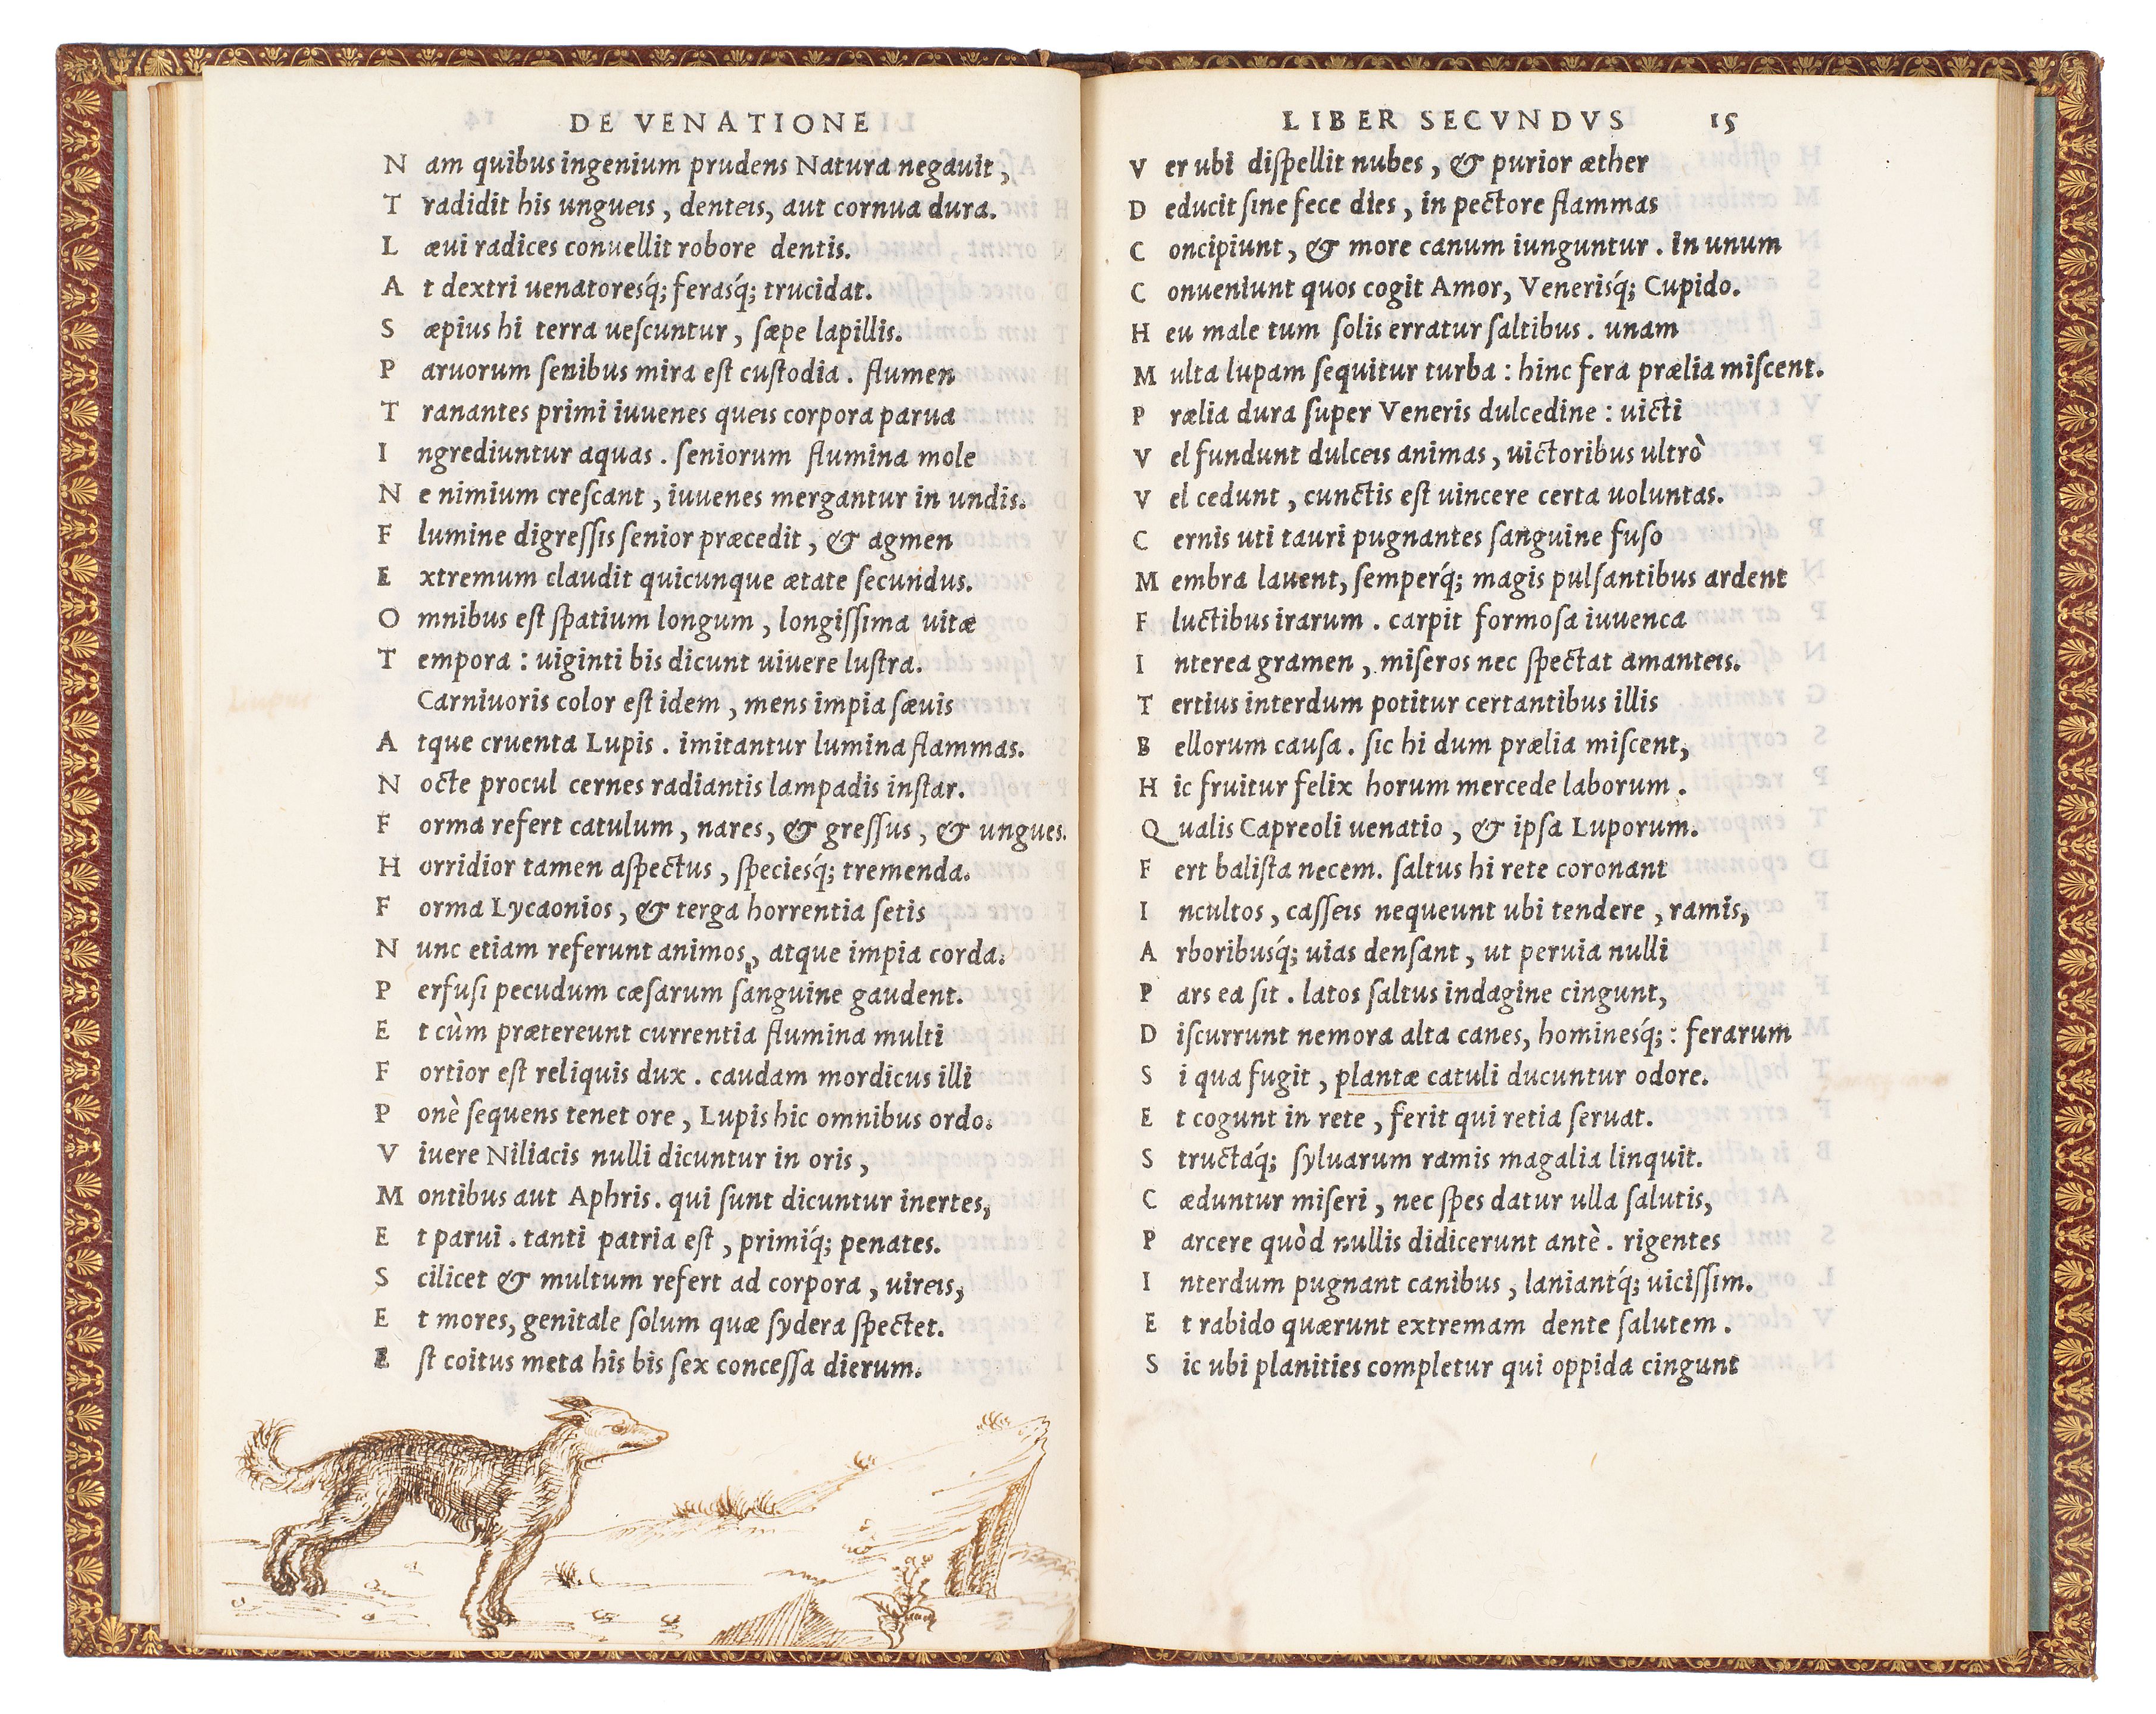 DE VENATIONE
Nam quibus ingenium prudens Natura negauit,
Tradidit his ungueis, denteis, aut cornua dura.
Læui radices conuellit robore dentis.
At dextri uenatoresq́; ferasq́; trucidat.
Sæpius hi terra uescuntur, sæpe lapillis.
Paruorum senibus mira est custodia. flumen
Tranantes primi iuuenes queis corpora parua
Ingrediuntur aquas. seniorum flumina mole
Ne nimium crescant, iuuenes mergàntur in undis.
Flumine digressis senior præcedit, & agmen
Extremum claudit quicunque ætate secundus.
Omnibus est spatium longum, longissima uitæ
Tempora: uiginti bis dicunt uiuere lustra.
Lupus
Carniuoris color est idem, mens impia sæuis
Atque cruenta Lupis. imitantur lumina flammas.
Nocte procul cernes radiantis lampadis instar.
Forma refert catulum, nares, & gressus, & ungues.
Horridior tamen aspectus, speciesq́; tremenda.
Forma Lycaonios, & terga horrentia setis
Nunc etiam referunt animos, atque impia corda.
Perfusi pecudum cæsarum sanguine gaudent.
Et cùm prætereunt currentia flumina multi
Fortior est reliquis dux. caudam mordicus illi
Ponè sequens tenet ore, Lupis hic omnibus ordo.
Viuere Niliacis nulli dicuntur in oris,
Montibus aut Aphris. qui sunt dicuntur inertes,
Et parui. tanti patria est, primiq́; penates.
Scilicet & multum refert ad corpora, uireis,
Et mores, genitale solum quæ sydera spectet.
Est coitus meta his bis sex concessa dierum.
LIBER SECVNDVS 15
Ver ubi dispellit nubes, & purior æther
Deducit sine fece dies, in pectore flammas
Concipiunt, & more canum iunguntur. In unum
Conueniunt quos cogit Amor, Venerisq́; Cupido.
Heu male tum solis erratur saltibus. unam
Multa lupam sequitur turba: hinc fera prælia miscent.
Prælia dura super Veneris dulcedine: uicti
Vel fundunt dulceis animas, uictoribus ultrò
Vel cedunt, cunctis est uincere certa uoluntas.
Cernis uti tauri pugnantes sanguine fuso
Membra lauent, semperq́; magis pulsantibus ardent
Fluctibus irarum. carpit formosa iuuenca
Interea gramen, miseros nec spectat amanteis.
Tertius interdum potitur certantibus illis
Bellorum causa. sic hi dum prælia miscent,
Hic fruitur felix horum mercede laborum.
Qualis Capreoli uenatio, & ipsa Luporum.
Fert balista necem. saltus hi rete coronant
Incultos, casseis nequeunt ubi tendere, ramis,
Arboribusq́; uias densant, ut peruia nulli
Pars ea sit. latos saltus indagine cingunt,
Discurrunt nemora alta canes, hominesq́;: ferarum
Si qua fugit, plantæ catuli ducuntur odore.
Et cogunt in rete, ferit qui retia seruat.
Structaq́; syluarum ramis magalia linquit.
Cæduntur miseri, nec spes datur ulla salutis,
Parcere quòd nullis didicerunt antè. rigentes
Interdum pugnant canibus, laniantq́; uicissim.
Et rabido quærunt extremam dente salutem.
Sic ubi planities completur qui oppida cingunt